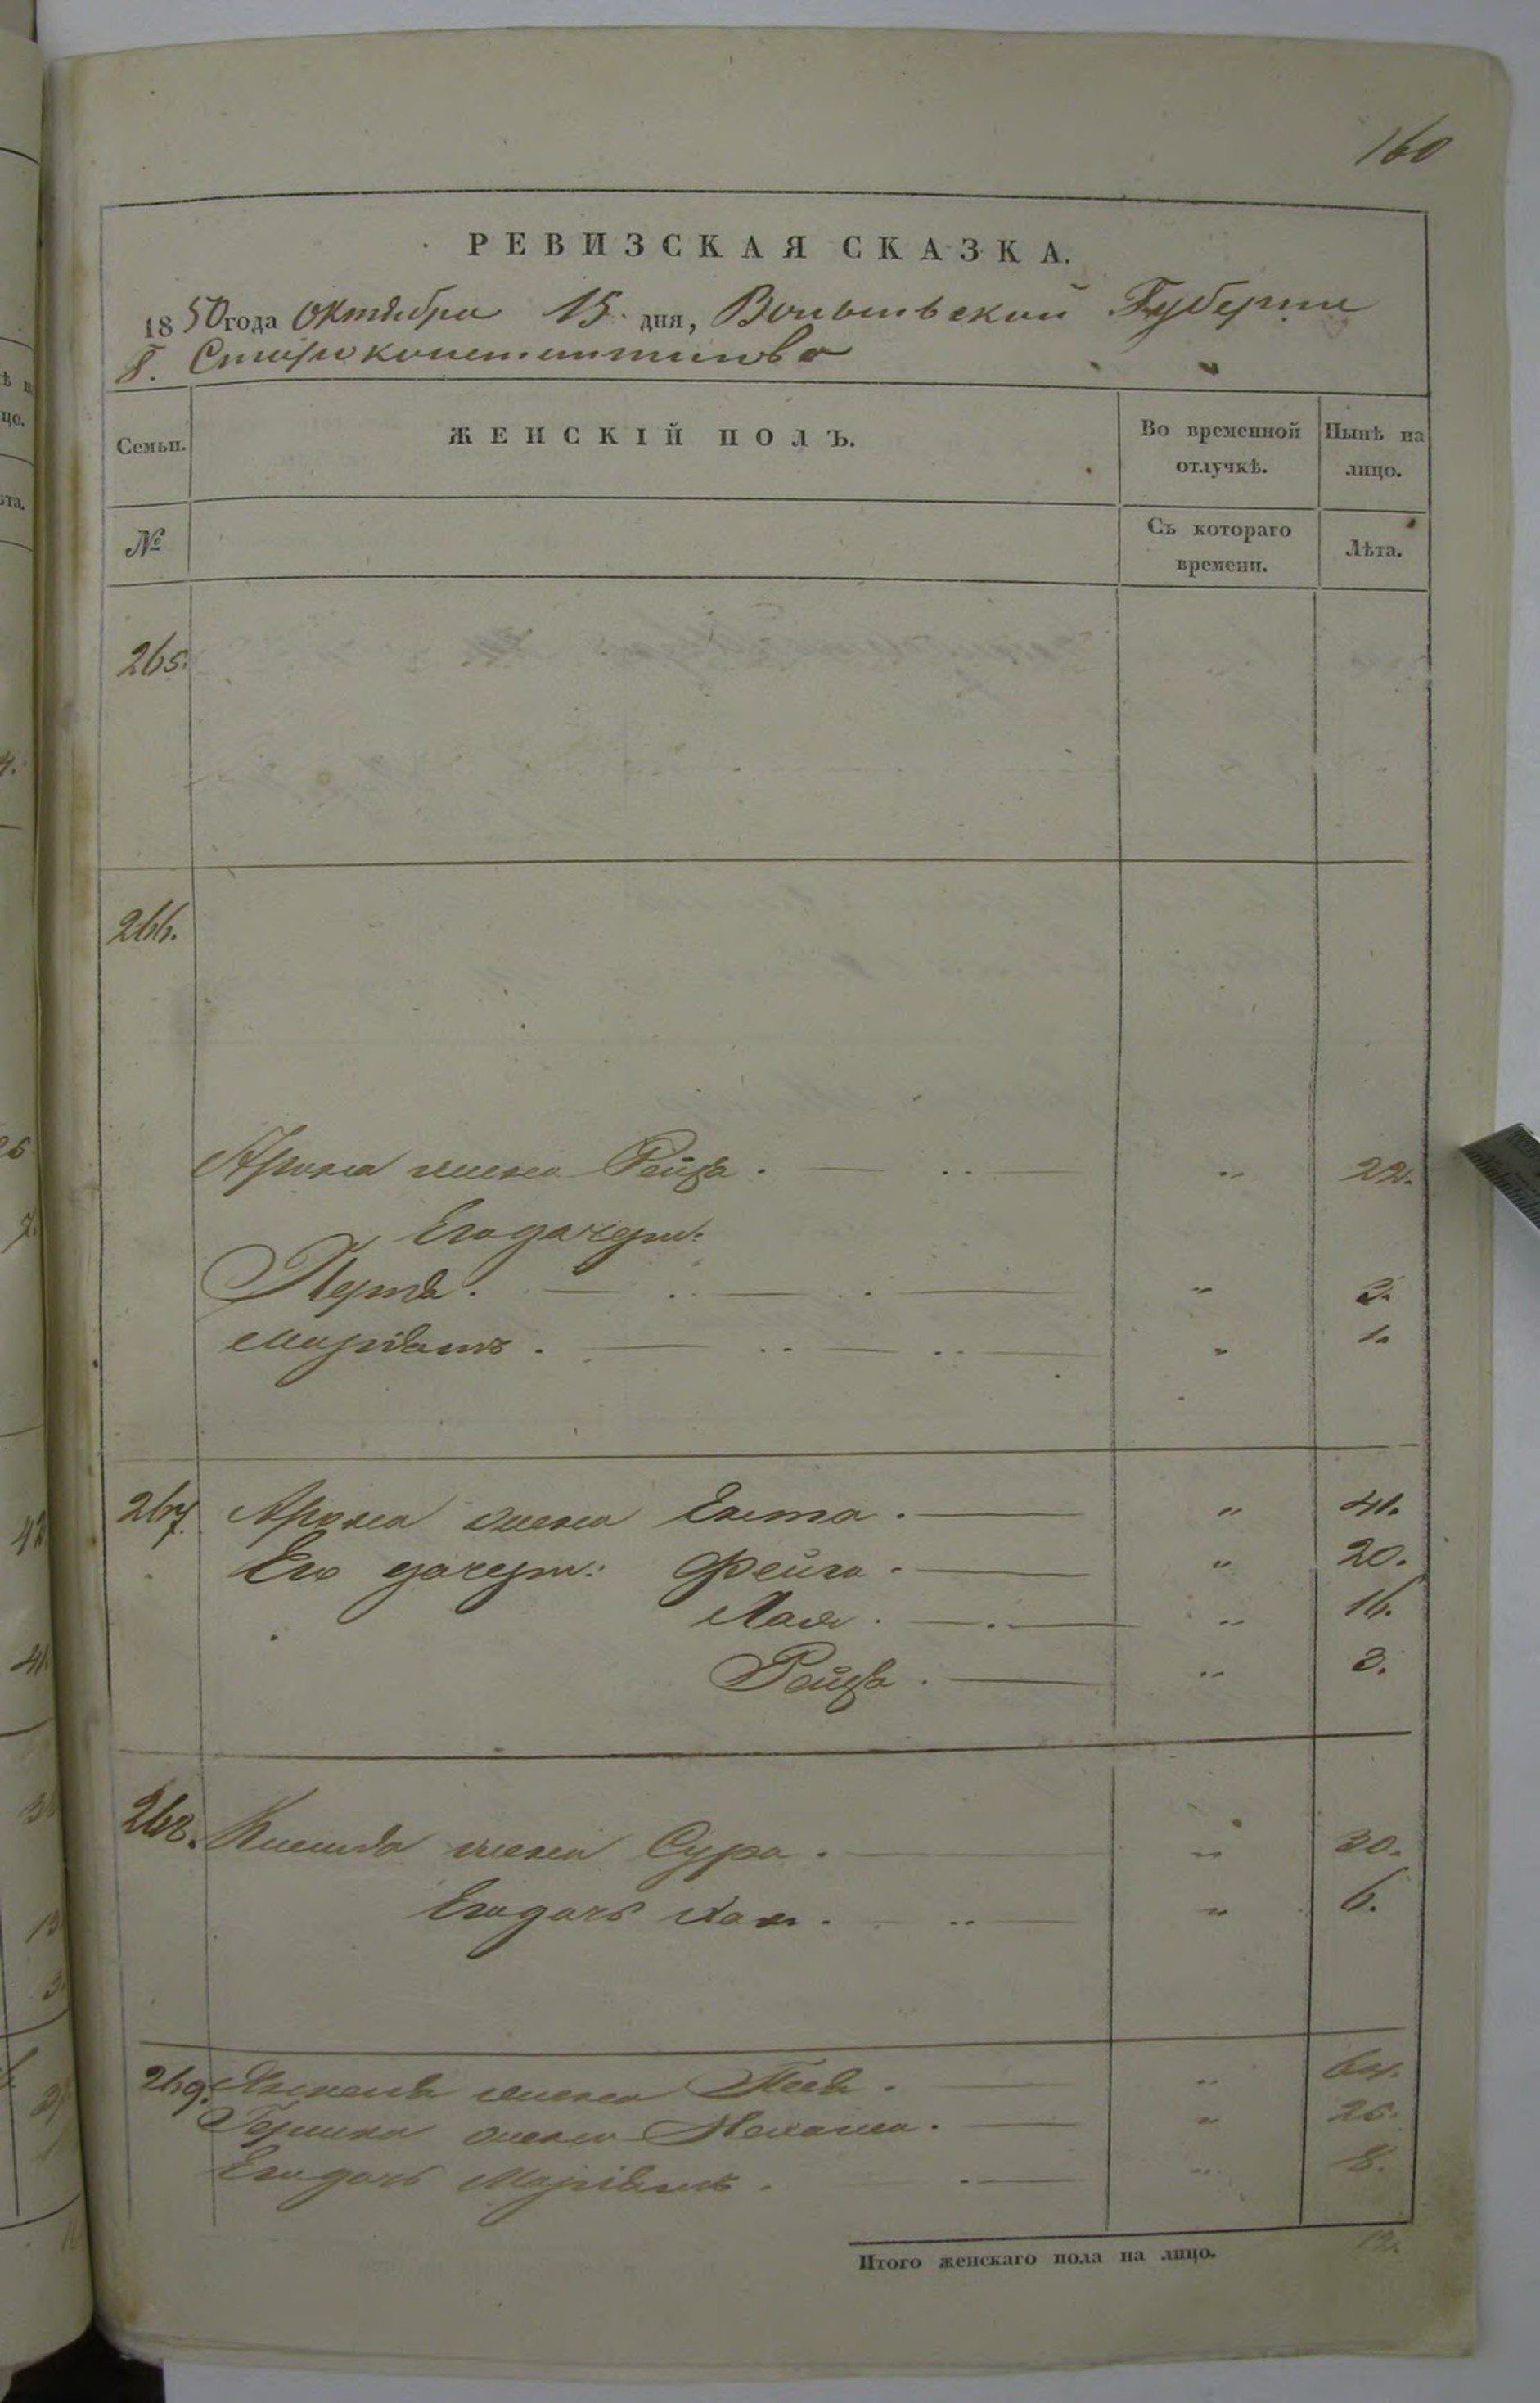 160
РЕВИЗСКАЯ СКАЗКА.
1850 года Октября 15. дня, Волынской Губернии
г. Староконстантинова
Семьи.
ЖЕНСКІЙ ПОЛЪ.
Во временной отлучкѣ.
Нынѣ на лицо.
№
Съ котораго времени.
Лѣта.
265.
266.
Арона жена Рейза. " 22.
Его дочери:
Перля. " 3.
Маріямъ. " 1.
267. Арона жена Ента. " 41.
Его дочери: Фейга. " 20.
Лая. " 16.
Рейза. " 3.
268. жена Сура. " 30.
Его дочь Хая. " 6.
269. жена "
Гершка жена Нехама. " 25.
Его дочь Маріямъ. " 8.
Итого женскаго пола на лицо. 12.